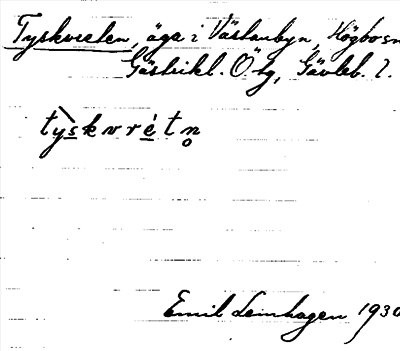 Tyskvreten, äga i Västanbyn, Högbo sn
Gästrikl. Ö. tg, Gävleb. l.
tỳskvrétn̥
Emil Leinhagen 1930